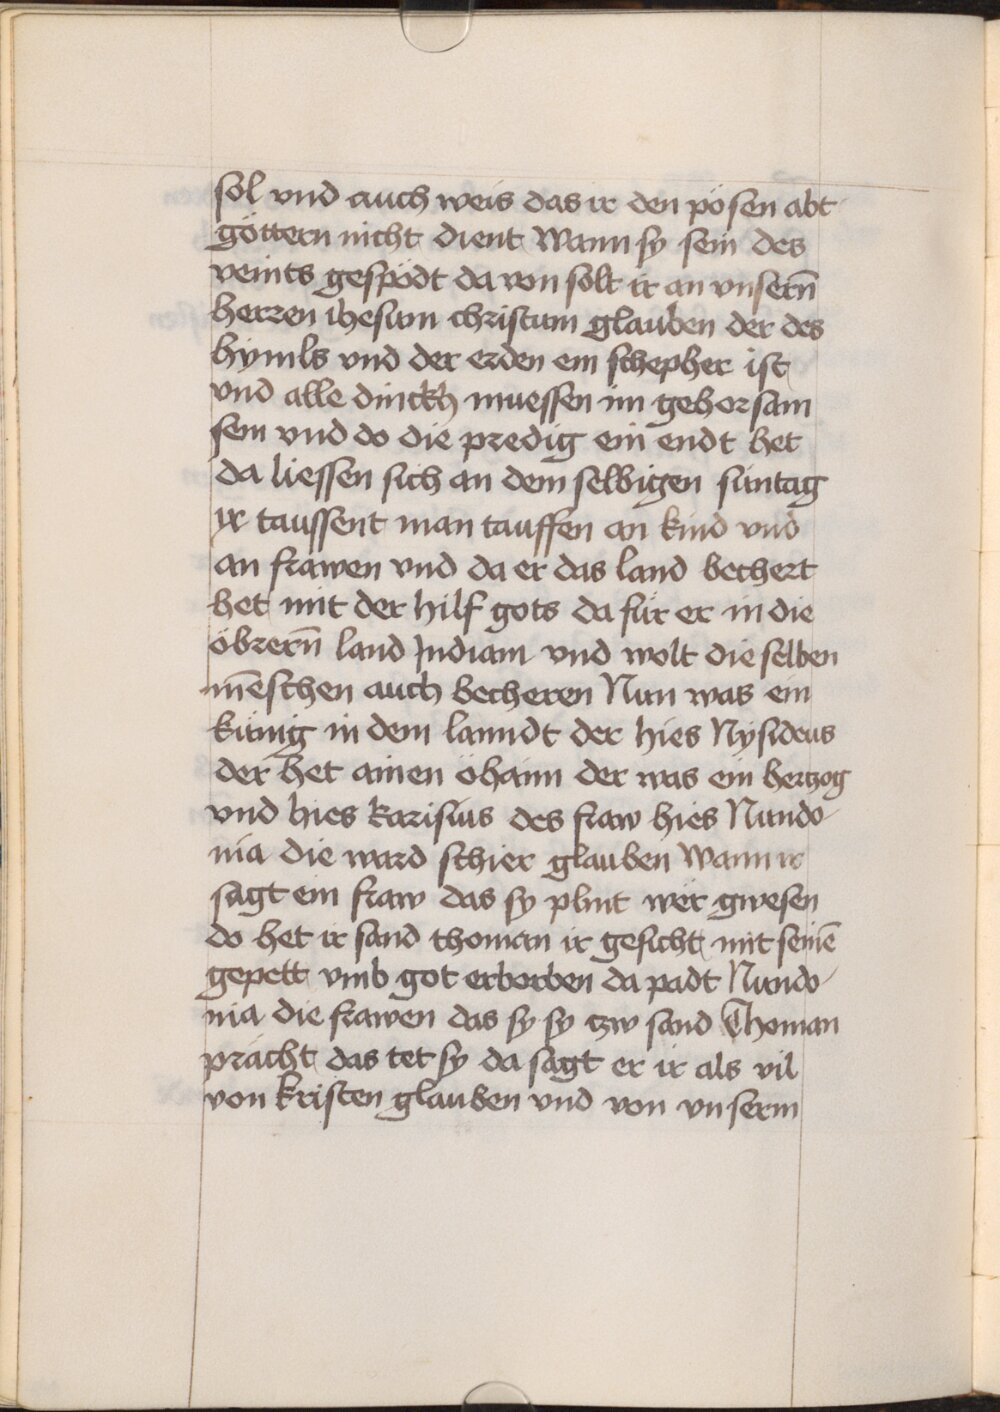 sol vnd auch weis das ir den pösen abt
göttern nicht dient Wann sy sein des
veints gespödt da von solt ir an vnsern̄
herren ihesum christum glauben der des
hymls vnd der erden ein schepher ist
vnd alle dinckh muessen im gehorsam
sein vnd do die predig ein endt het
da liessen sich an dem selbigen suntag
ix taussent man tauffen an kind vnd
an frawen vnd da er das land bechert
het mit der hilf gots da für er in die
öbrern̄ land Indiam vnd wolt die selben
mēschen auch becheren Nun was ein
künig in dem lanndt der hies Nysideus
der het ainen öhaim der was ein hertzog
vnd hies karisius des fraw hies Nundo-
nia die ward schier glauben Wann ir
sagt ein fraw das sy plint wër gwesen
do het ir sand thoman ir gesicht mit seinē
gepett vmb got erborben da padt Nundo-
nia die frawen das sy sy tzw sand Thoman
prächt das tet sy da sagt er ir als vil
von kristen glauben vnd von vnserm